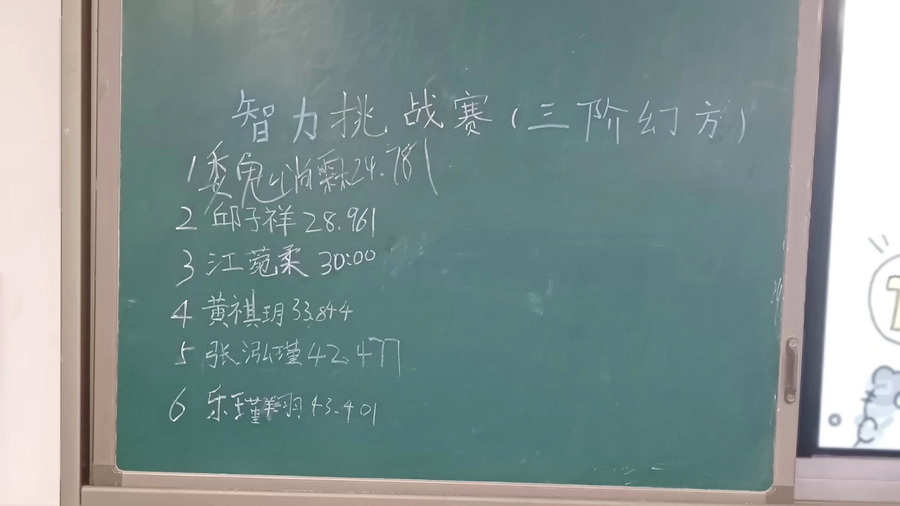 智力挑战赛(三阶幻方)
1 霖24.781
2 邱子祥 28.961
3 江菀柔 30:00
4 黄祺玥 33.844
5 张泓瑾 42.477
6 乐瑾翔 43.401